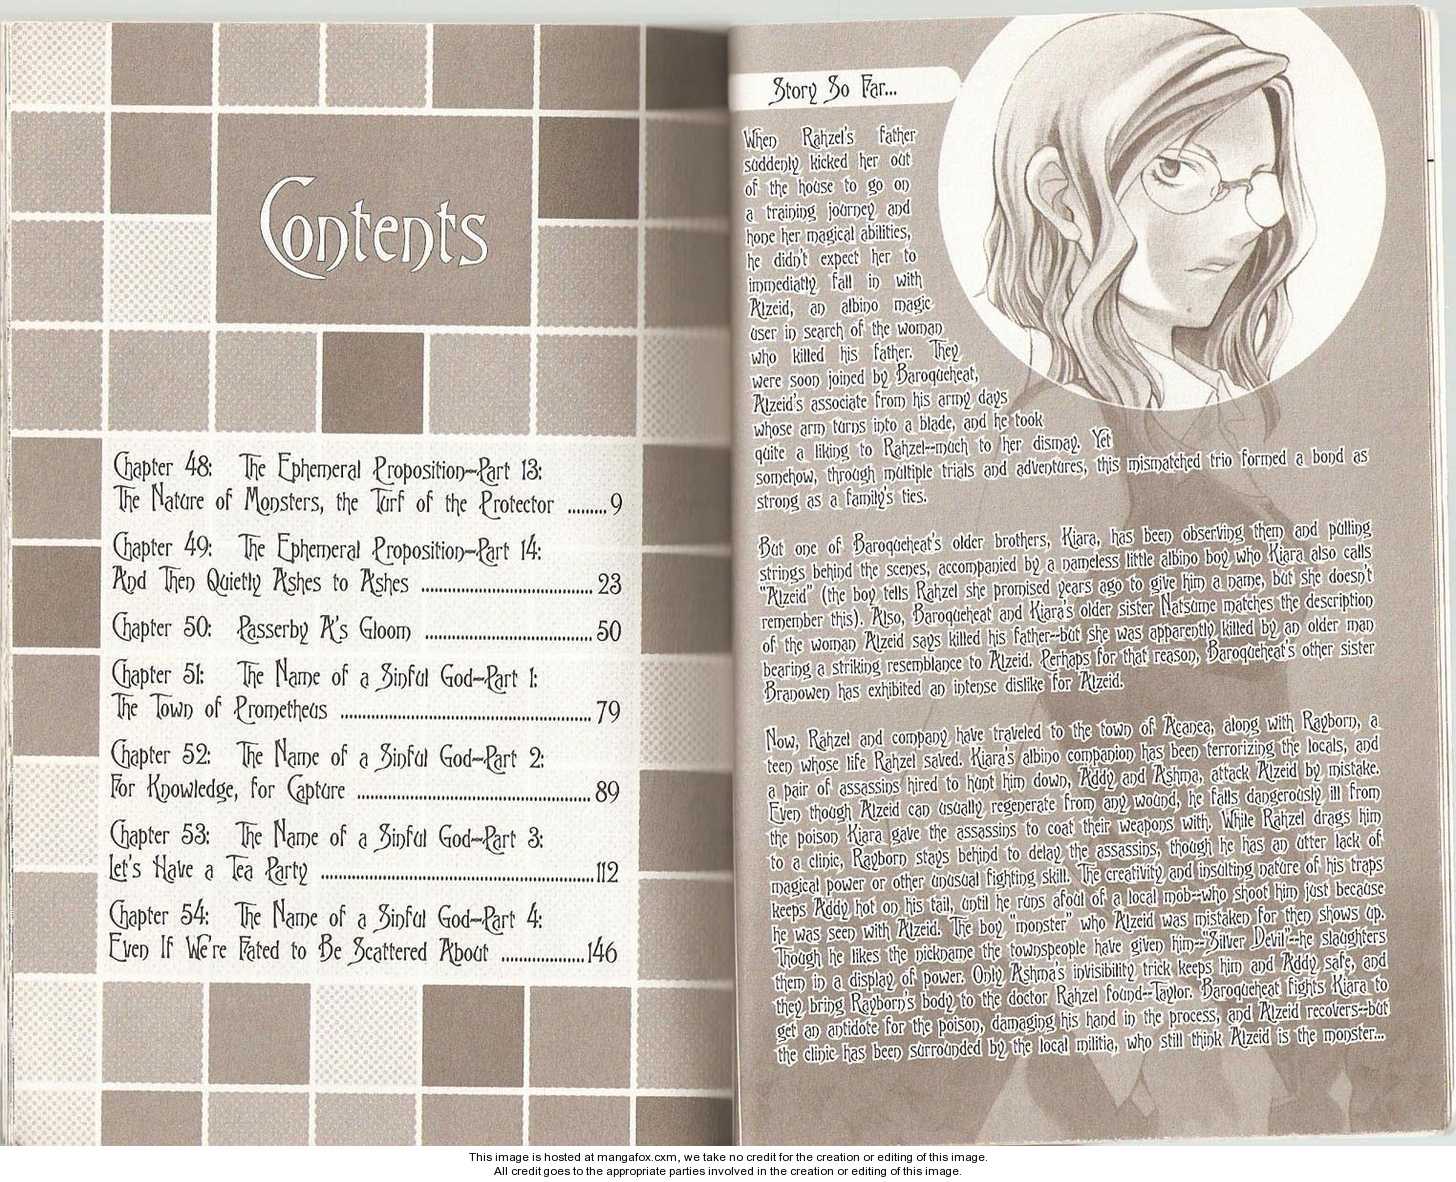 Contents
Chapter 48: The Ephemeral Proposition--Part 13:
The Nature of Monsters, the Turf of the Protector .........9
Chapter 49: The Ephemeral Proposition--Part 14:
And Then Quietly Ashes to Ashes ........................................ 23
Chapter 50: Passerby A's Gloom .......................................50
Chapter 51: The Name of a Sinful God--Part 1:
The Town of Prometheus ..........................................................79
Chapter 52: The Name of a Sinful God--Part 2:
For Knowledge, for Capture ......................................................89
Chapter 53: The Name of a Sinful God--Part 3:
Let's Have a Tea Party ...............................................................112
Chapter 54: The Name of a Sinful God--Part 4:
Even If We're Fated to Be Scattered About ...................146
Story So Far...
When Rahzel's father
suddenly kicked her out
of the house to go on
a training journey and
hone her magical abilities,
he didn't expect her to
immediatly fall in with
Alzeid, an albino magic
user in search of the woman
who killed his father. They
were soon joined by Baroqueheat,
Alzeid's associate from his army days
whose arm turns into a blade, and he took
quite a liking to Rahzel--much to her dismay. Yet
somehow, through multiple trials and adventures, this mismatched trio formed a bond as
strong as a family's ties.
But one of Baroqueheat's older brothers, Kiara, has been observing them and pulling
strings behind the scenes, accompanied by a nameless little albino boy who Kiara also calls
"Alzeid" (the boy tells Rahzel she promised years ago to give him a name, but she doesn't
remember this). Also, Baroqueheat and Kiara's older sister Natsume matches the description
of the woman Alzeid says killed his father--but she was apparently killed by an older man
bearing a striking resemblance to Alzeid. Perhaps for that reason, Baroqueheat's other sister
Branowen has exhibited an intense dislike for Alzeid.
Now, Rahzel and company have traveled to the town of Acanea, along with Rayborn, a
teen whose life Rahzel saved. Kiara's albino companion has been terrorizing the locals, and
a pair of assassins hired to hunt him down, Addy and Ashma, attack Alzeid by mistake.
Even though Alzeid can usually regenerate from any wound, he falls dangerously ill from
the poison Kiara gave the assassins to coat their weapons with. While Rahzel drags him
to a clinic, Rayborn stays behind to delay the assassins, though he has an utter lack of
magical power or other unusual fighting skill. The creativity and insulting nature of his traps
keeps Addy hot on his tail, until he runs afoul of a local mob--who shoot him just because
he was seen with Alzeid. The boy "monster" who Alzeid was mistaken for then shows up.
Though he likes the nickname the townspeople have given him--"Silver Devil"--he slaughters
them in a display of power. Only Ashma's invisibility trick keeps him and Addy safe, and
they bring Rayborn's body to the doctor Rahzel found--Taylor. Baroqueheat fights Kiara to
get an antidote for the poison, damaging his hand in the process, and Alzeid recovers--but
the clinic has been surrounded by the local militia, who still think Alzeid is the monster...
This image is hosted at mangafox.cxm, we take no credit for the creation or editing of this image.
All credit goes to the appropriate parties involved in the creation or editing of this image.